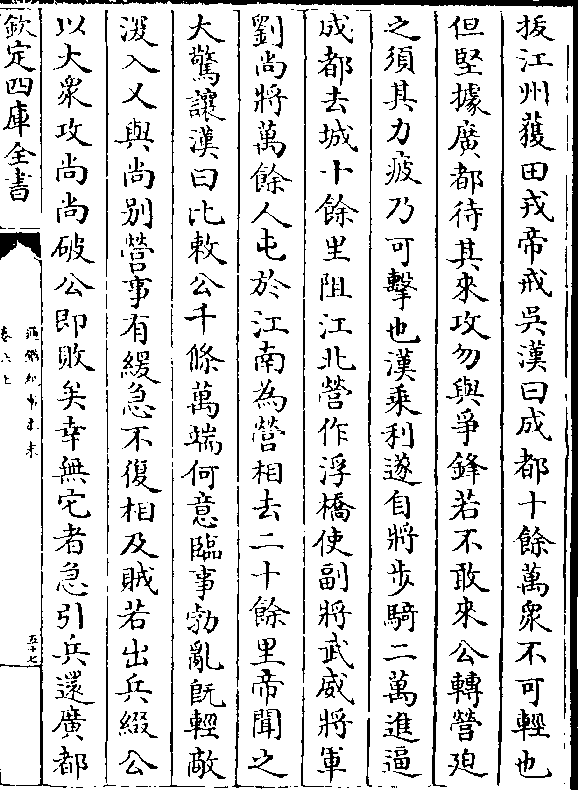 拔江州獲田戎帝戒吳漢曰成都十餘萬衆不可輕也
但堅據廣都待其來攻勿與爭鋒若不敢來公轉營廹
之須其力疲乃可擊也漢乘利遂自將步騎二萬進逼
成都去城十餘里阻江北營作浮橋使副將武威將軍
劉尚將萬餘人屯於江南為營相去二十餘里帝聞之
大驚讓漢曰比敕公千條萬端何意臨事勃亂既輕敵
深入又與尚别營事有緩急不復相及賊若出兵綴公
以大衆攻尚尚破公即敗矣幸無它者急引兵還廣都
欽定四庫全書
通鑑紀事本末
五十七